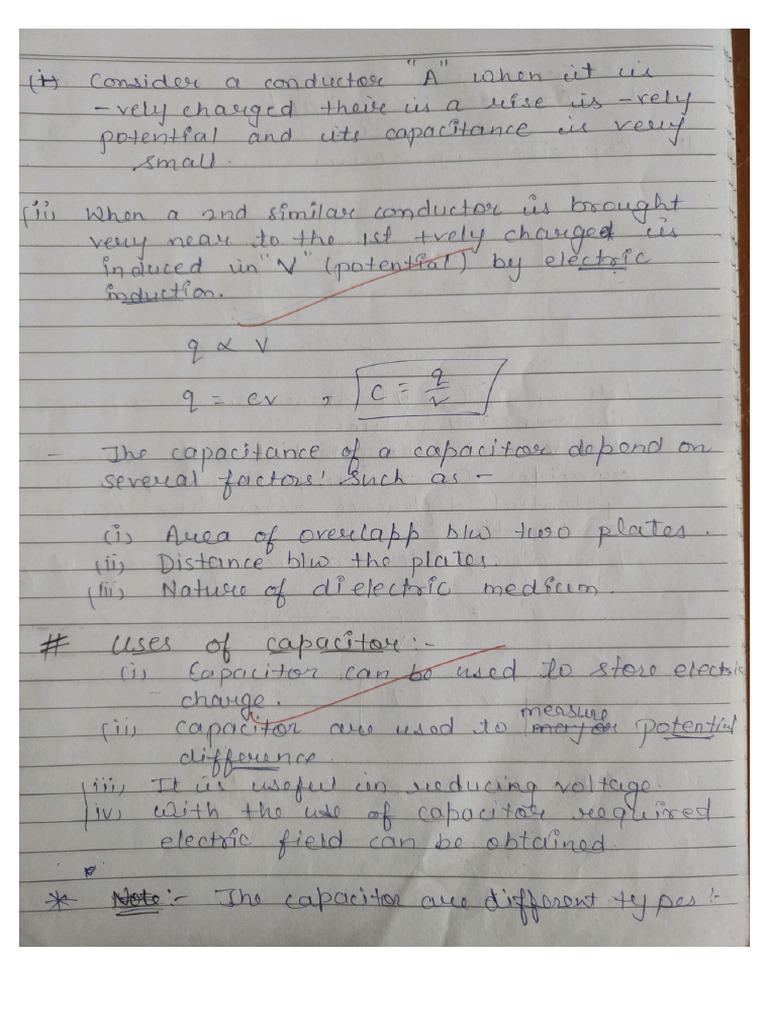 (i) Consider a conductor "A" when it is
-vely charged their is a rise is -vely
potential and its capacitance is very
small.
(ii) When a 2nd similar conductor is brought
very near to the 1st +vely charged is
induced in "V" (potential) by electric
induction.
q ∝ V
q = cv , C = q/v
- The capacitance of a capacitor depend on
several factors' such as -
(i) Area of overlapp b/w two plates.
(ii) Distance b/w the plates.
(iii) Nature of dielectric medium.
# Uses of capacitor:-
(i) Capacitor can be used to store electric
charge.
(ii) Capacitor are used to measure potential
difference.
(iii) It is useful in reducing voltage.
(iv) With the use of capacitor required
electric field can be obtained.
* Note:- The capacitor are different types:-